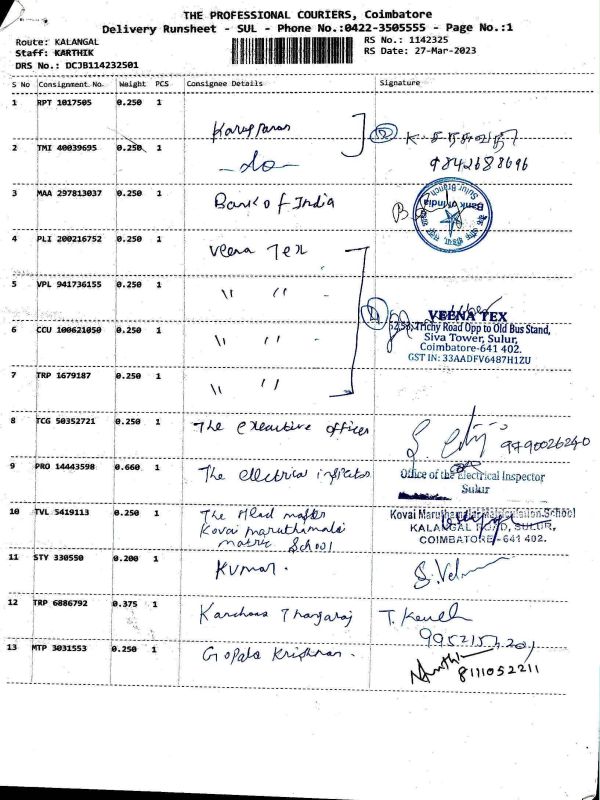 THE PROFESSIONAL COURIERS, Coimbatore
Delivery Runsheet - SUL - Phone No.:0422-3505555 - Page No.:1
Route: KALANGAL
Staff: KARTHIK
DRS No.: DCJB114232501
RS No.: 1142325
RS Date: 27-Mar-2023
S No Consignment No. Weight PCS Consignee Details Signature
1 RPT 1017505 0.250 1
Karuppanan
2 TMI 40039695 0.250 1
-do-
9842688696
3 MAA 297813037 0.250 1 Bank of India
Bank of India
Sulur Branch
4 PLI 200216752 0.250 1 Veena Tex
5 VPL 941736155 0.250 1 " " -
VEENA TEX
52,53, Trichy Road Opp to Old Bus Stand,
Siva Tower, Sulur,
Coimbatore-641 402.
GST IN: 33AADFV6487H1ZU
6 CCU 100621050 0.250 1 " "
7 TRP 1679187 0.250 1 " "
8 TCG 50352721 0.250 1 The executive officer
9790026240
9 PRO 14443598 0.660 1 The electrical inspector
Office of the Electrical Inspector
Sulur
10 TVL 5419113 0.250 1 The Head master
Kovai maruthimalai
matric School
KALANGAL ROAD, SULUR,
COIMBATORE - 641 402.
11 STY 330550 0.200 1 Kumar. S. Vel
12 TRP 6886792 0.375 1 Thangaraj
13 MTP 3031553 0.250 1 Gopala Krishnan.
8111052211